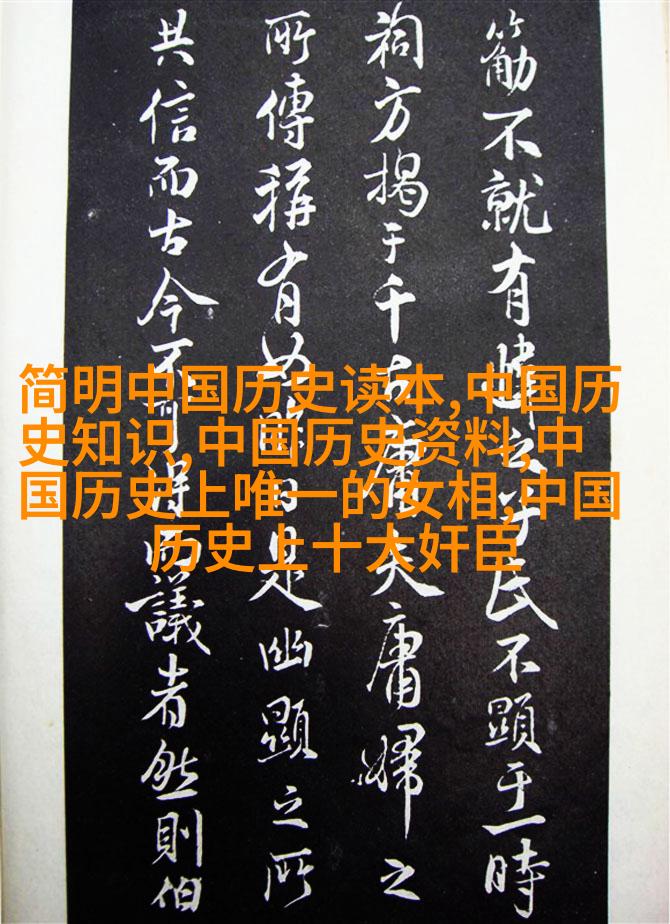 不就有氏不顯于一時
祠方揭于千古庸夫庸婦之
所傳稱有曰是幽顯之所
共信而古今不可得而議者然則伯
简明中国历史读本,中国历
史知识,中国历史资料,中
国历史上唯一的女相,中国
历史上十大奸臣